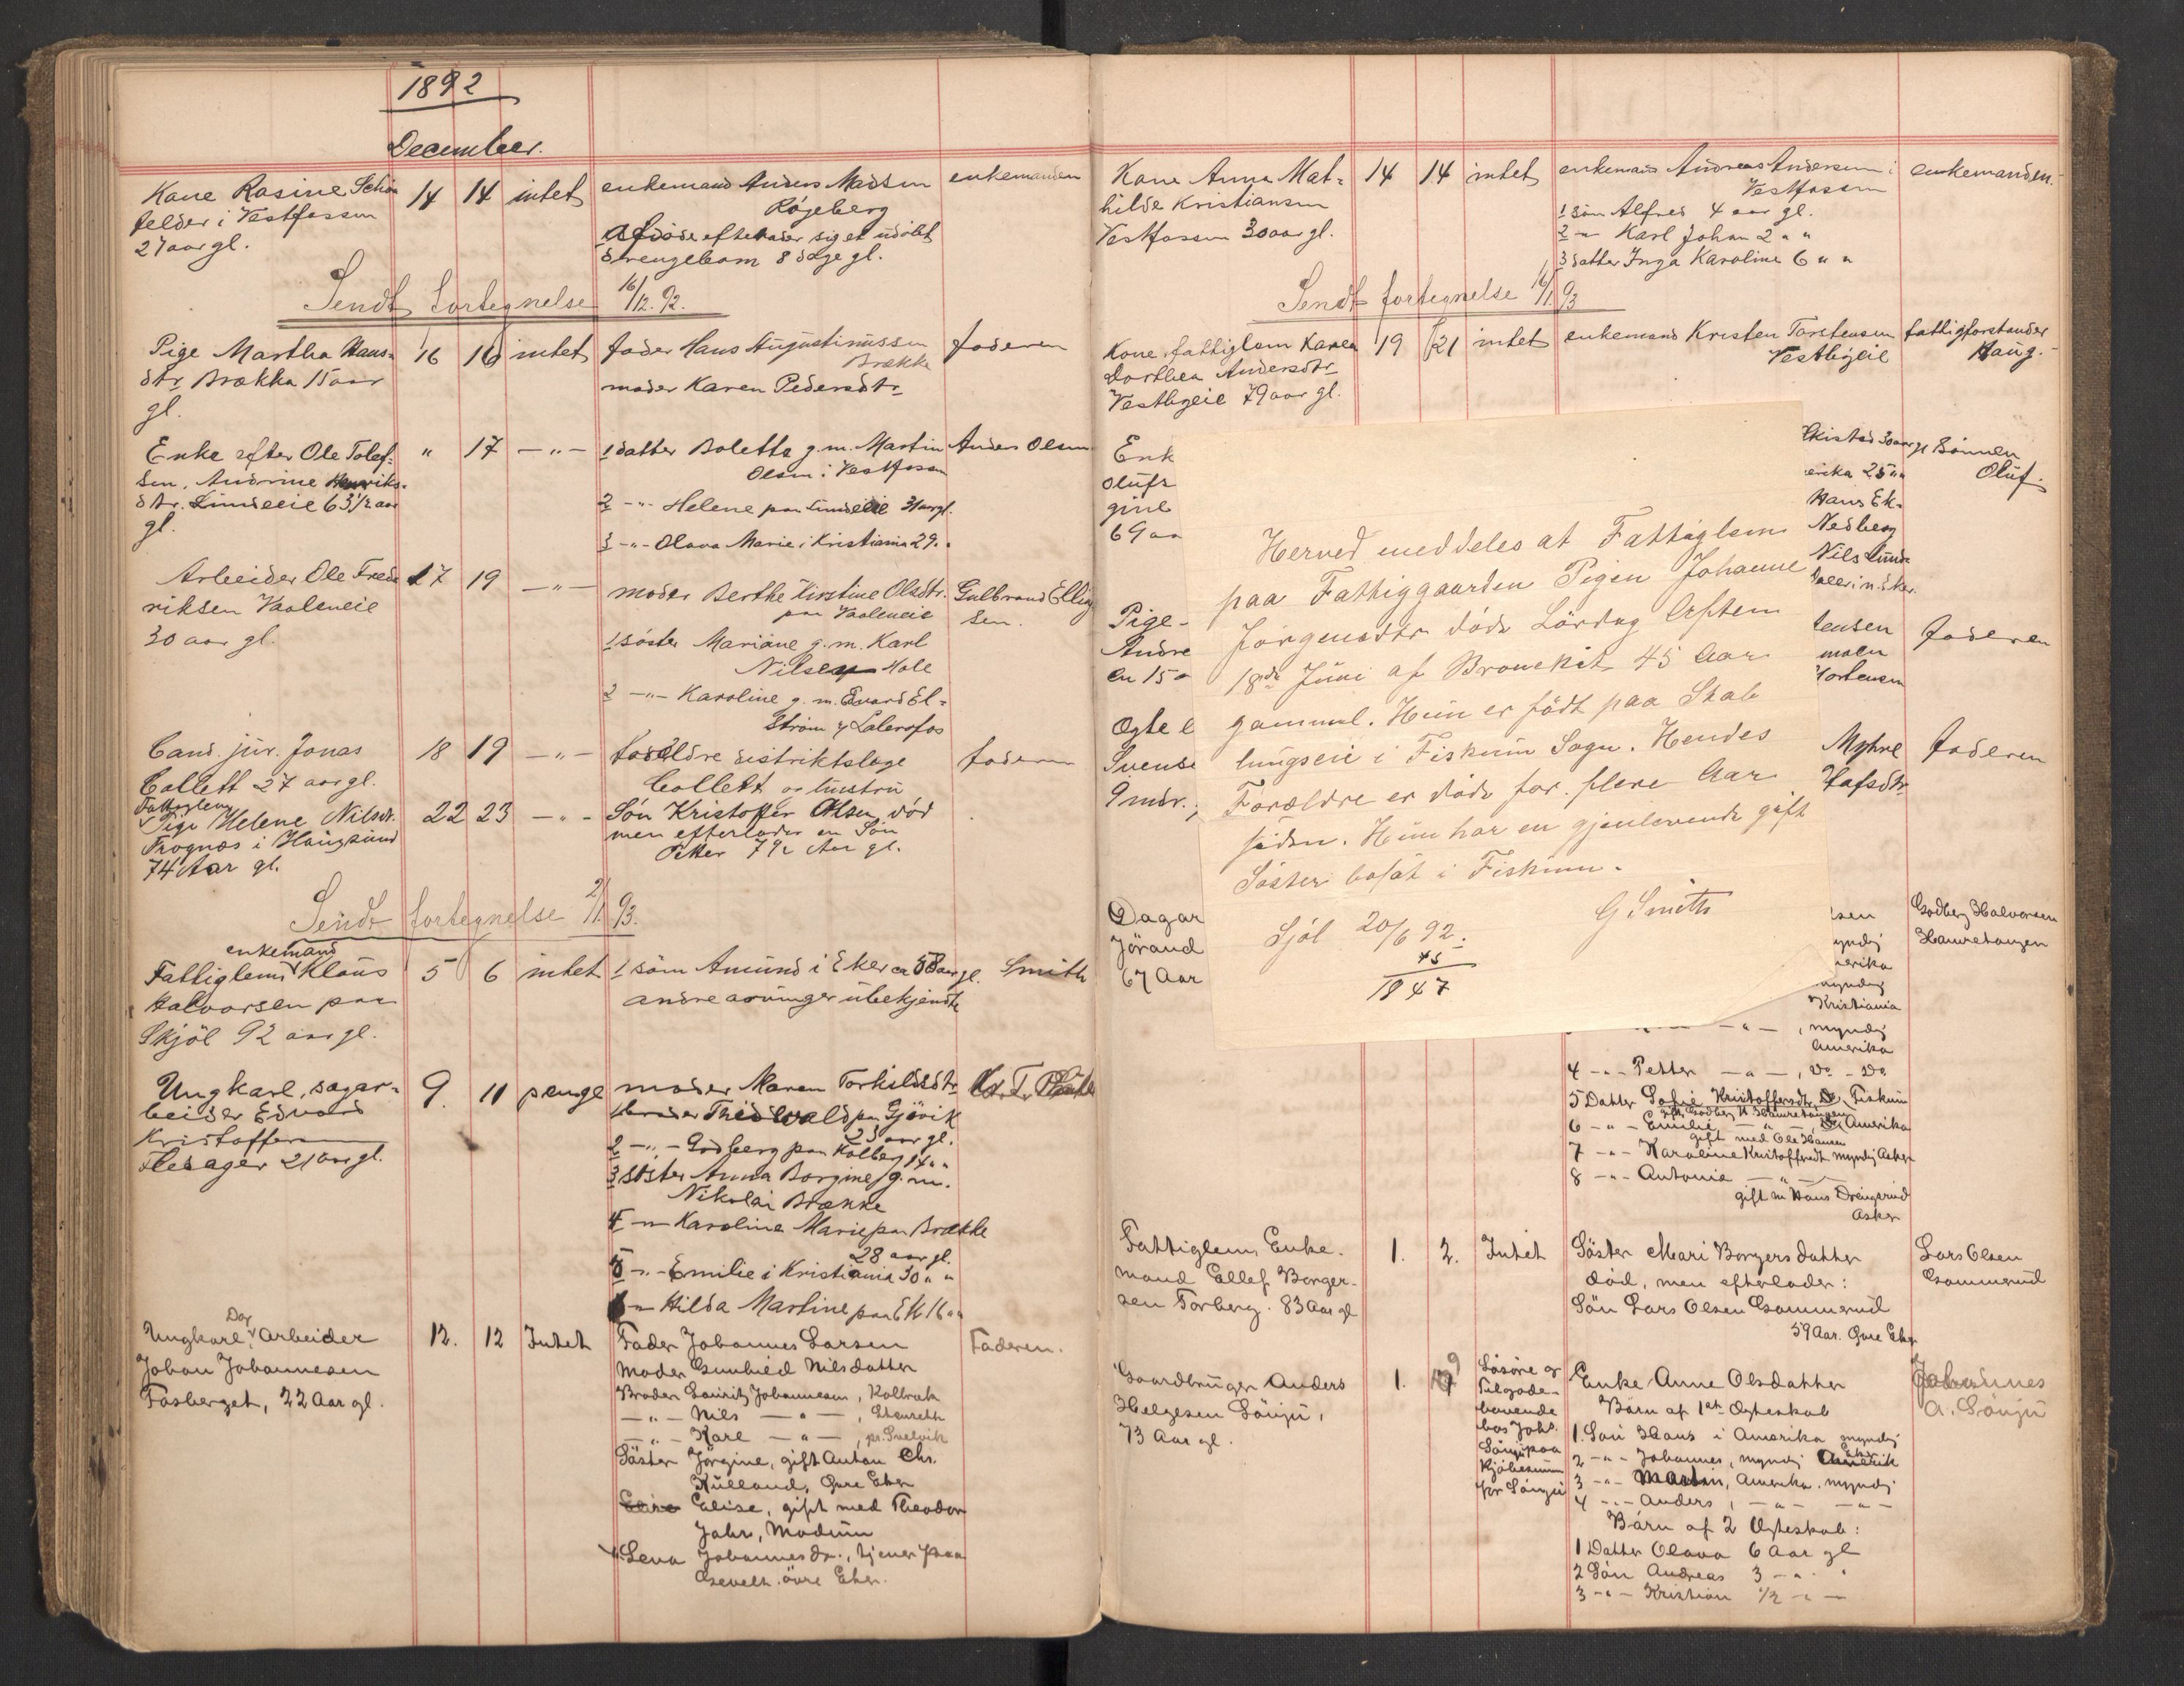 1892
December.
Kone Rosine Schön
felder i Vestfossen
27 aar gl.
14
14
intet
enkemand Anders Madsen
Røgeberg
Afdöde efterlader sig et udöbt
drengebarn 8 dage gl.
enkemanden
Sendt fortegnelse 16/12.92.
Pige Martha Hans-
dtr Brække 15 aar
gl.
16
16
intet
fader Hans Augustinussen
Brække
moder Karen Pedersdtr
faderen
Enke efter Ole Tolef-
sen, Andrine Henriks-
dtr. Lundeeie 63 1/2 aar
gl.
"
17
-"-
1 datter Bolette g.m. Martin
Olsen i Vestfossen
2 -"- Helene paa Lundeeie 31 aar gl.
3 -"- Olava Marie i Kristiania 29 "
Anders Olsen
Arbeider Ole Fred
riksen Vaaleneie
30 aar gl.
17
19
-"-
moder Berthe Kirstine Olsdtr.
paa Vaaleneie
1 söster Mariane g.m. Karl
Nilsen Hole
2 -"- Karoline g.m. Edvard El-
ström
Gulbrand Elling
sen.
Cand. jur. Jonas
Collett 27 aar gl.
18
19
-"-
forældre distriktslæge
Collett og hustru
faderen
Fattiglem
Pige Helene Nilsdt.
Frognæs i Haugsund
74 Aar gl.
22
23
-"-
Sön Kristoffer Olsen, död
men efterlader en Sön
Peter 7 1/2 Aar gl.
Sendt fortegnelse 2/1 93.
enkemand
Fattiglem Klaus
Halvorsen paa
Skjöl 92 aar gl.
5
6
intet
1 sön Amund i Eker ca 58 aar gl.
andre arvinger ubekjendte
Smith
Ungkarl, sagar-
beider Edvard
Kristoffersen
Flesager 21 aar gl.
9.
11
penge
moder Maren Torkildsdtr
1 broder Thidwald paa Gjövik
23 aar gl.
2 -"- Godberg paa Kolberg 14 " "
3 söster Anna Borgine g.m.
Nikolai Brække
4 -"- Karoline Marie paa Brække
28 aar gl.
5 -"- Emilie i Kristiania 30 " "
6 -"- Hilda Martine paa Ek 16 " "
Dag
Ungkarl, Arbeider
Johan Johannesen
Fosberget, 22 Aar gl.
12.
12
Intet
Fader Johannes Larsen
Moder Gunhild Nilsdatter
Broder Lauritz Johannesen, Kolbræk
-"- Nils -"-, Stenseth
-"- Karl -"-, pr. Svelvik
Söster Jörgine, gift Anton Chr.
Kulland, Övre Eker
Elise, gift med Theodor
Jahr, Modum
Lena Johannesdr., tjener paa
övre Eker.
Faderen.
Kone Anna Mat-
hilde Kristiansen
Vestfossen 30 aar gl.
14
14
intet
enkemand Andreas Andersen i
Vestfossen
1 sön Alfred 4 aar gl.
2 -"- Karl Johan 2 " "
3 datter Inga Karoline 6 " "
enkemanden.
Sendt fortegnelse 16/1 93
Kone fattiglem Karen
Dorthea Andersdtr
Vestbyeie 79 aar gl.
19
21
intet
enkemand Kristen Torstensen
Vestbyeie
fattigforstander
Haug.
Enk
olufs
gine
69 aa
Herved meddeles at Fattiglem
paa Fattiggaarden Pigen Johanne
Jörgensdtr döde Lördag Aften
18de Juni af Bronchit 45 Aar
gammel. Hun er födt paa Stab
lungseie i Fiskum Sogn. Hendes
Forældre er döde for flere Aar
siden. Hun har en gjenlevende gift
Söster bosat i Fiskum.
G Smith
Sjöl 20/6 92.
45
1847
erika 25 " "
Hans Ek-
Nedberg
Nils Lund-
Sönnen
Oluf.
Pige
Andre
en 15
tensen
moen
Mortensen
faderen
Ogte
Svense
9 mdr.,
Myhre
faderen
Dagar
Jörand
67 Aar
lsen
myndig
merika
myndig
Kristiania
-"-, myndig
Amerika
4 -"- Petter -"-, Do - Do
5 Datter Sofie Kristoffersdtr, Fiskum
gift Godberg H Haavrehaugen
6 -"- Emilie -"- Amerika
gift med Ole Hansen
7 -"- Karoline Kristoffersdt. myndig Asker
8 -"- Antonie -"-
gift m Hans Drengsrud
Asker
Godberg Halvorsen
Haavrehaugen
Fattiglem, Enke-
mand Ellef Borger-
sen Torberg. 83 Aar gl
1.
2.
Intet
Söster Mari Borgersdatter
död, men efterlader:
Sön Lars Olsen Gommerud
59 Aar. Övre Eker
Lars Olsen
Gommerud
Gaardbruger Anders
Helgesen Lönju,
73 Aar gl.
1.
9
Lösöre og
Tilgode-
havende
hos Johs.
Lönju paa
Kjöbesum
for Lönju
Enke Anne Olsdatter
Börn af 1ste Ægteskab
1. Sön Hans i Amerika myndig
2 -"- Johannes, myndig Eker
3 -"- Martin, Amerika. myndig
4 -"- Anders, -"- -"-
Börn af 2 Ægteskab:
1 Datter Olava 6 Aar gl
2 Sön Andreas 3 -"- "
3 -"- Kristian 1/2 -"-
Johannes
A. Lönju